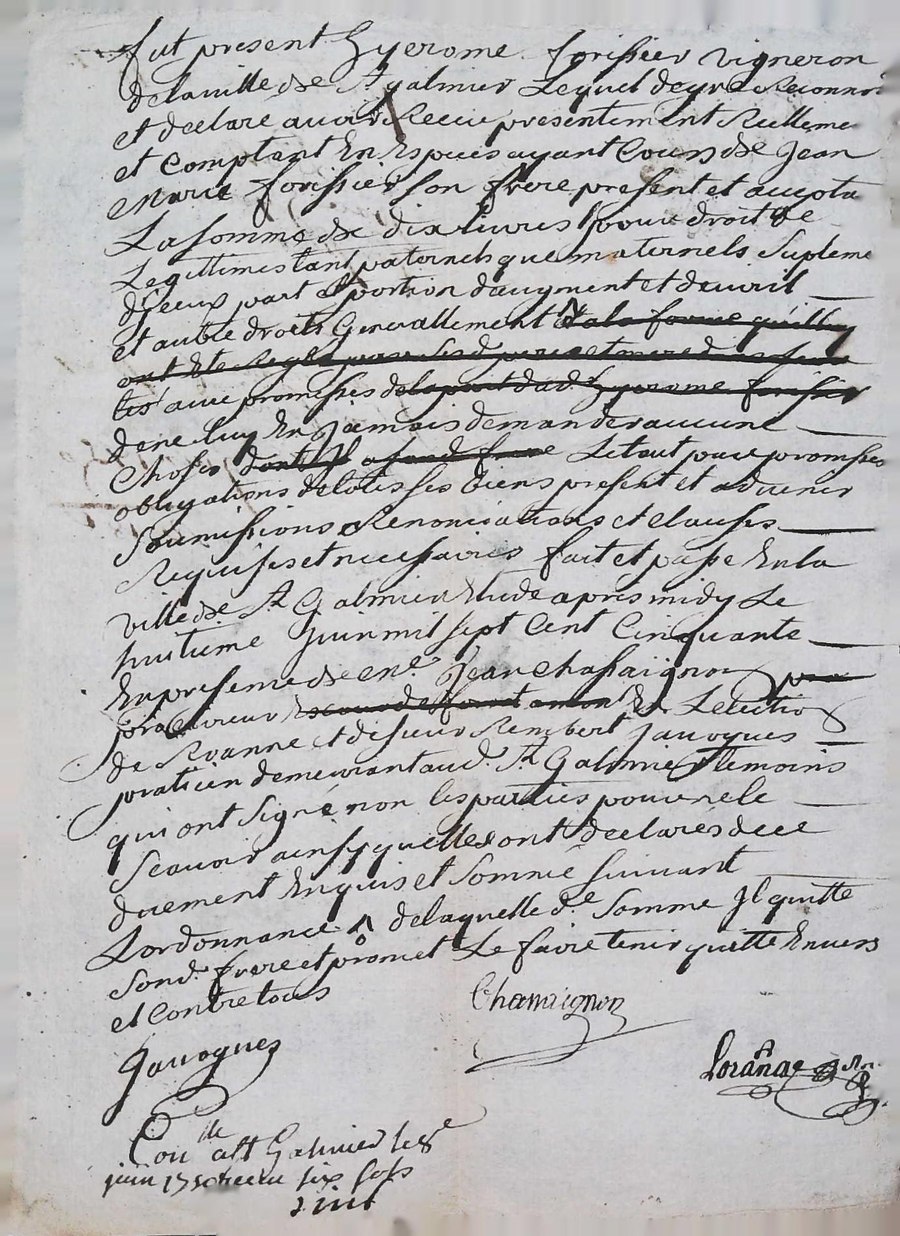 fut present hyerome forissier vigneron
de la ville de St galmier Lequel de gré Reconnoi
et declare avoir Receu presentement Reelleme
et comptant En Especes ayant Cours de Jean
Marie forissier son frere present et accepta
La somme de dix livres pour droit de
Legittimes tant paternels que maternels Supleme
d'jceux part et portion d'augment et de
et autre droits Generallement et a la forme quils
ont Eté Reglé par ses d. pere et mere
avec promesses de la part dud. hyerome forissier
de ne luy En Jamais demander aucune
Choses dont Il a sond frere Le tout pour promesses
obligations de tous ses biens present et advenir
Soumissions Renonciations et clauses
Requises et necessaires fait et passé En la
ville de St Galmier Etude apres midy Le
huitieme Juin mil sept Cent Cinquante
En presence de me. Jean Chassaignon
procureur En Lelection
de Roanne et de sieur Rembert Javogues
praticien demeurant aud. St Galmier temoins
qui ont signé non les parties pour ne le
Scavoir ainsy quelles ont declarés de ce
duement Enquis et sommé suivant
Lordonnance de laquelle de. somme Il quitte
sond. frere et promet Le faire tenir quitte Envers
et contre tous
Chassaignon
Javogues
Lorange
Conlle a St Galmier le 8e
juin 1750 Receu six sols